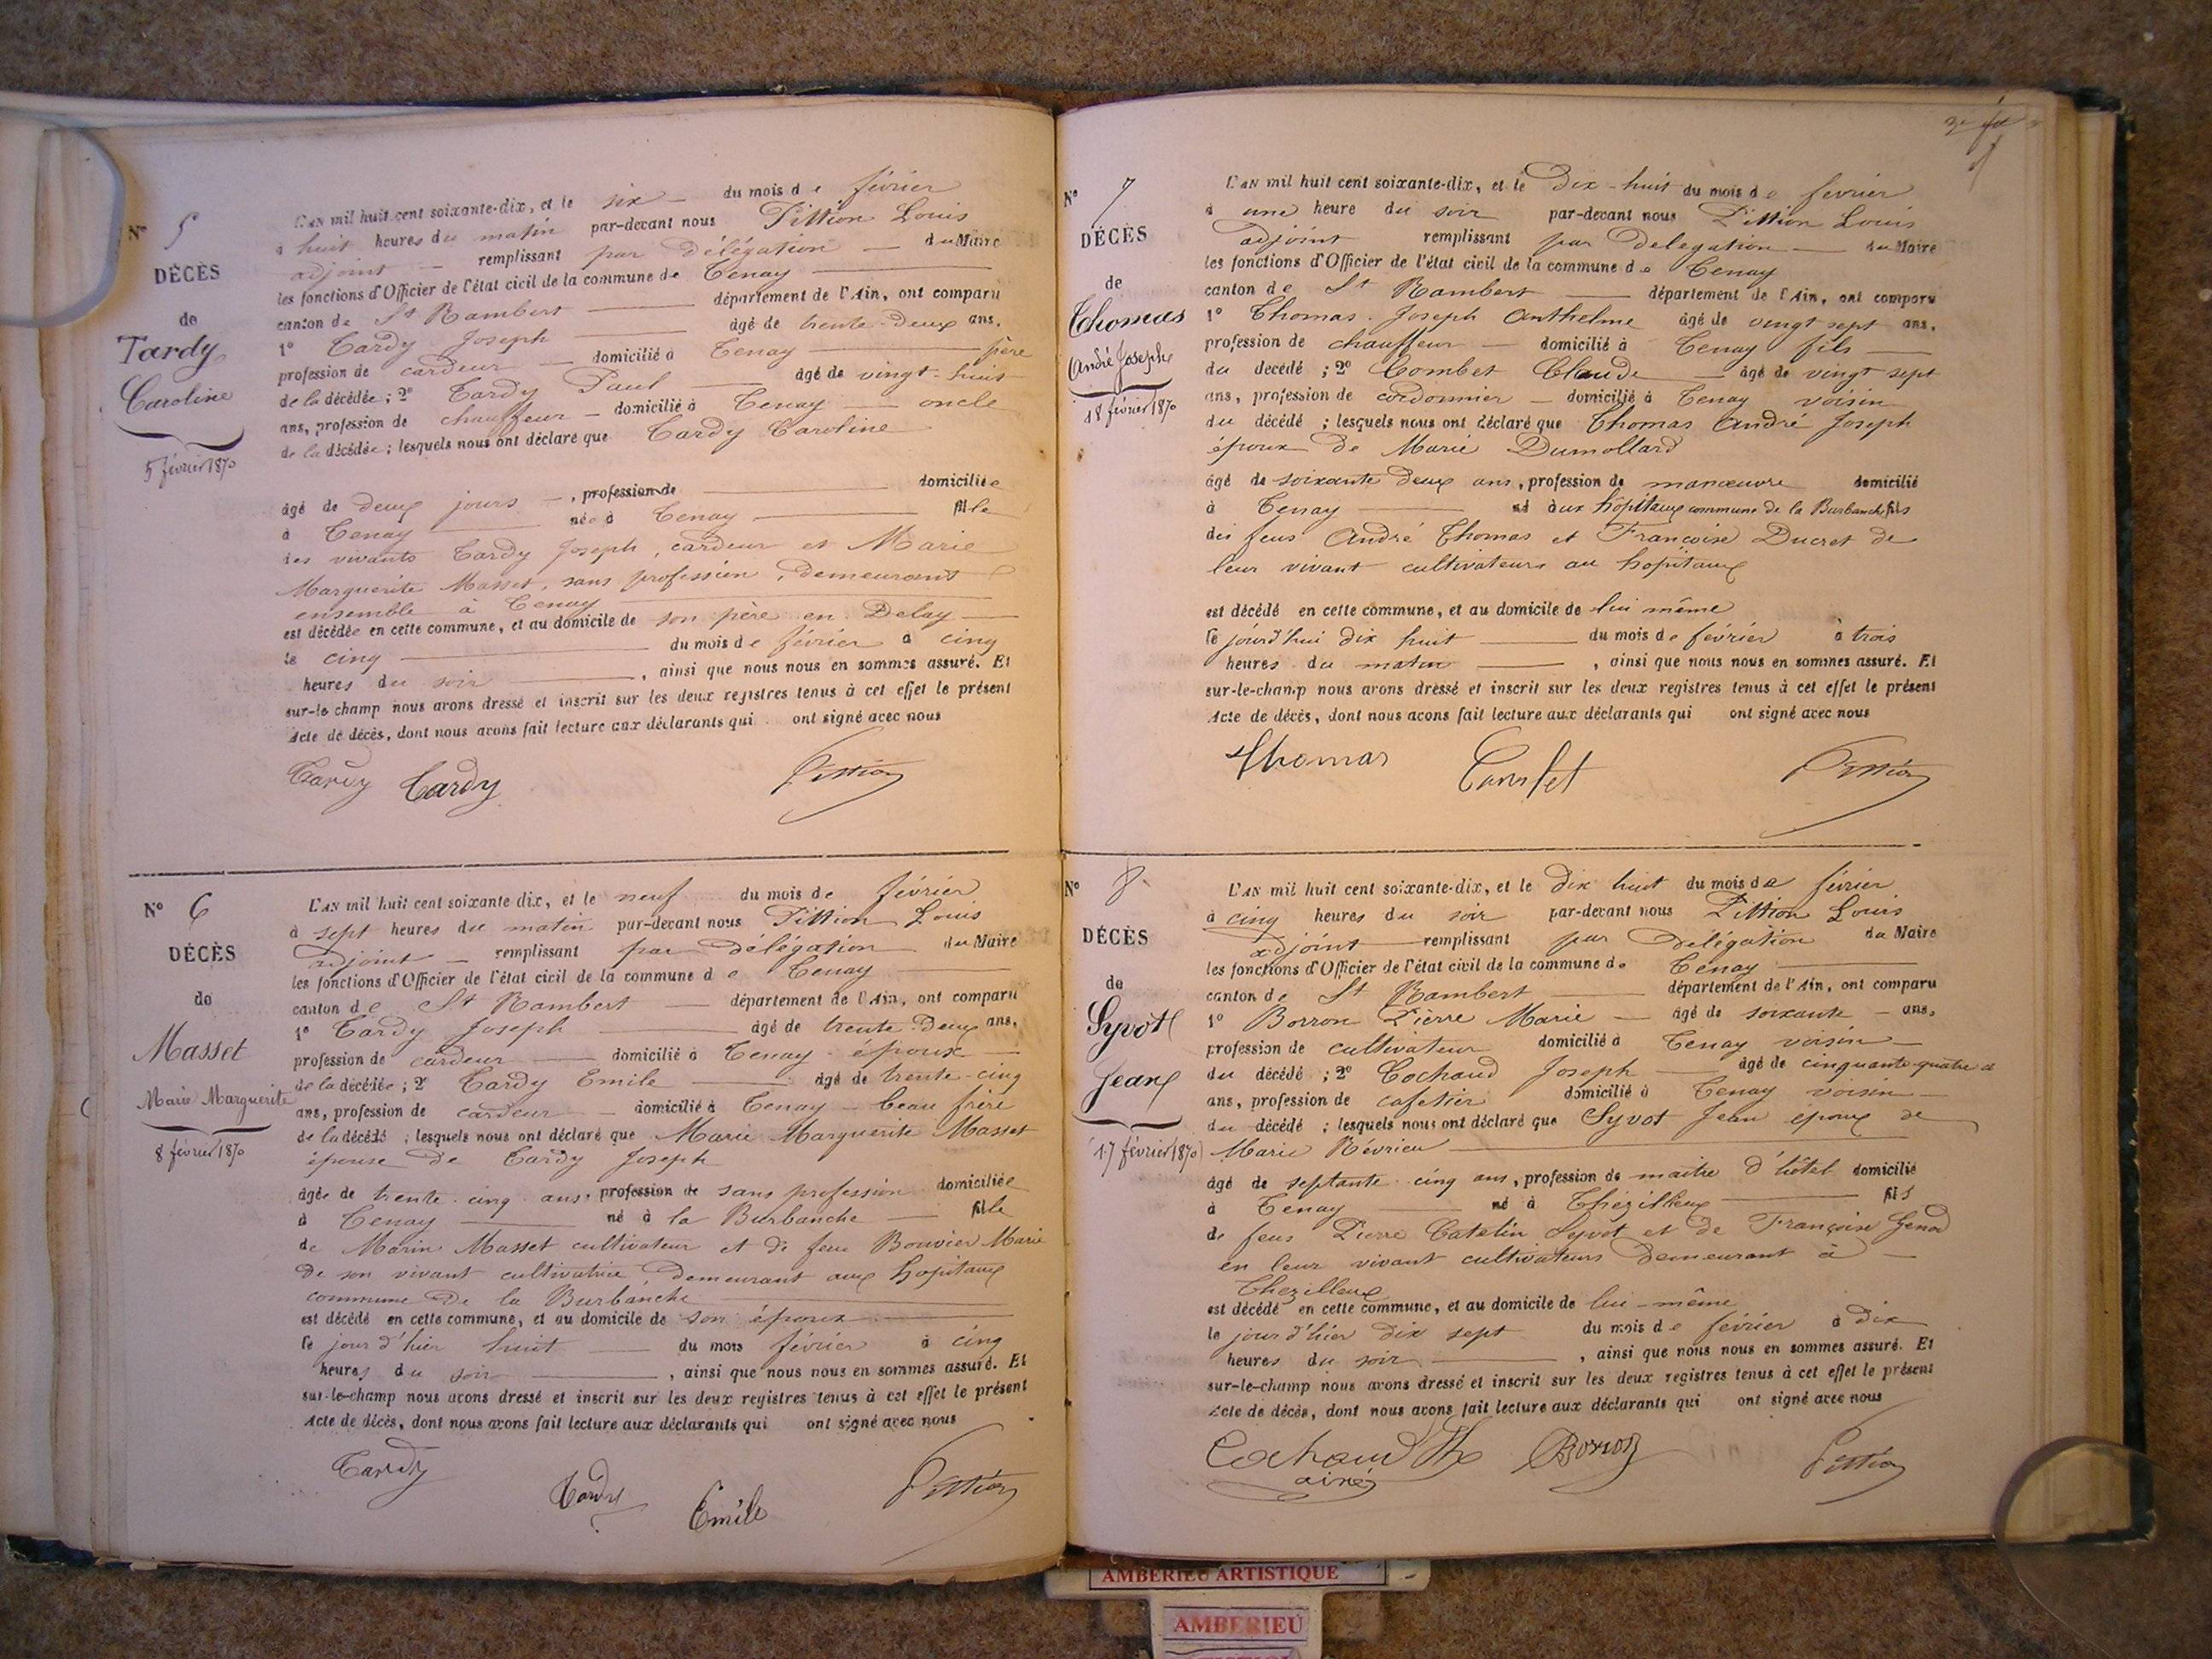 N° 5
DÉCÈS
de
Tardy
Caroline
5 février 1870
L'AN mil huit cent soixante-dix, et le six du mois de février
à huit heures du matin par-devant nous Pittion Louis
adjoint remplissant par délégation du Maire
les fonctions d'Officier de l'état civil de la commune de Tenay
canton de St Rambert département de l'Ain, ont comparu
1° Tardy Joseph âgé de trente-deux ans,
profession de cardeur domicilié à Tenay père
de la décédée ; 2° Tardy Paul âgé de vingt-huit
ans, profession de chauffeur domicilié à Tenay oncle
de la décédée ; lesquels nous ont déclaré que Tardy Caroline
âgé de deux jours, profession de domiciliée
à Tenay née à Tenay fille
des vivants Tardy Joseph, cardeur et Marie
Marguerite Masset, sans profession, demeurant
ensemble à Tenay
est décédée en cette commune, et au domicile de son père en Delay
le cinq du mois de février à cinq
heures du soir, ainsi que nous nous en sommes assuré. Et
sur-le champ nous avons dressé et inscrit sur les deux registres tenus à cet effet le présent
Acte de décès, dont nous avons fait lecture aux déclarants qui ont signé avec nous
Tardy Tardy Pittion
N° 6
DÉCÈS
de
Masset
Marie Marguerite
8 février 1870
L'AN mil huit cent soixante dix, et le neuf du mois de février
à sept heures du matin par-devant nous Pittion Louis
adjoint remplissant par délégation du Maire
les fonctions d'Officier de l'état civil de la commune de Tenay
canton de St Rambert département de l'Ain, ont comparu
1° Tardy Joseph âgé de trente-deux ans,
profession de cardeur domicilié à Tenay époux
de la décédée ; 2° Tardy Emile âgé de trente-cinq
ans, profession de cardeur domicilié à Tenay beau frère
de la décédé ; lesquels nous ont déclaré que Marie Marguerite Masset
épouse de Tardy Joseph
âgée de trente-cinq ans, profession de sans profession domiciliée
à Tenay né à la Burbanche fille
de Marin Masset cultivateur et de feue Bouvier Marie
de son vivant cultivatrice, demeurant aux hopitaux
commune de la Burbanche
est décédé en cette commune, et au domicile de son époux
le jour d'hier huit du mois février à cinq
heures du soir, ainsi que nous nous en sommes assuré. Et
sur-le-champ nous avons dressé et inscrit sur les deux registres tenus à cet effet le présent
Acte de décès, dont nous avons fait lecture aux déclarants qui ont signé avec nous
Tardy Tardy Emile Pittion
N° 7
DÉCÈS
de
Thomas
André Joseph
18 février 1870
L'AN mil huit cent soixante-dix, et le dix-huit du mois de fevrier
à une heure du soir par-devant nous Pittion Louis
adjoint remplissant par délégation du Maire
les fonctions d'Officier de l'état civil de la commune de Tenay
canton de St Rambert département de l'Ain, ont comparu
1° Thomas Joseph Anthelme âgé de vingt sept ans,
profession de chauffeur domicilié à Tenay fils
du décédé ; 2° Combet Claude âgé de vingt sept
ans, profession de cordonnier domicilié à Tenay voisin
du décédé ; lesquels nous ont déclaré que Thomas André Joseph
époux de Marie Dumollard
âgé de soixante deux ans, profession de manoeuvre domicilié
à Tenay né aux hôpitaux commune de la Burbanche fils
des feus André Thomas et Françoise Ducret de
leur vivant cultivateurs au hopitaux
est décédé en cette commune, et au domicile de lui même
le jourd'hui dix huit du mois de février à trois
heures du matin, ainsi que nous nous en sommes assuré. Et
sur-le-champ nous avons dressé et inscrit sur les deux registres tenus à cet effet le présent
Acte de décès, dont nous avons fait lecture aux déclarants qui ont signé avec nous
Thomas Combet Pittion
N° 8
DÉCÈS
de
Syvot
Jean
17 février 1870
L'AN mil huit cent soixante-dix, et le dix huit du mois de février
à cinq heures du soir par-devant nous Pittion Louis
adjoint remplissant par délégation du Maire
les fonctions d'Officier de l'état civil de la commune de Tenay
canton de St Rambert département de l'Ain, ont comparu
1° Borron Pierre Marie âgé de soixante ans,
profession de cultivateur domicilié à Tenay voisin
du décédé ; 2° Cochaud Joseph âgé de cinquante-quatre
ans, profession de cafetier domicilié à Tenay voisin
du décédé ; lesquels nous ont déclaré que Syvot Jean époux de
Marie Révrieu
âgé de septante-cinq ans, profession de maître d'hôtel domicilié
à Tenay né à Thézilleux fils
de feus Pierre Catelin Syvot et de Françoise Genod
en leur vivant cultivateurs demeurant à
Thezilleux
est décédé en cette commune, et au domicile de lui-même
le jour d'hier dix sept du mois de février à dix
heures du soir, ainsi que nous nous en sommes assuré. Et
sur-le-champ nous avons dressé et inscrit sur les deux registres tenus à cet effet le présent
Acte de décès, dont nous avons fait lecture aux déclarants qui ont signé avec nous
Cochaud Jh Borron Pittion
ainé
AMBERIEU ARTISTIQUE
AMBERIEU